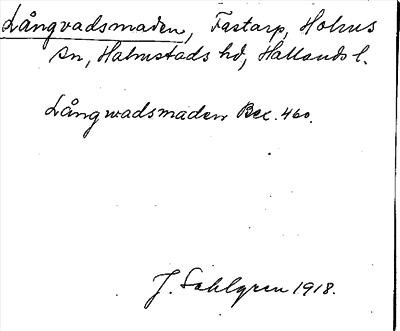 Långvadsmaden, Fastarp, Holms
sn, Halmstads hd, Hallands l.
Långwadsmaden Bec. 460.
J. Sahlgren 1918.